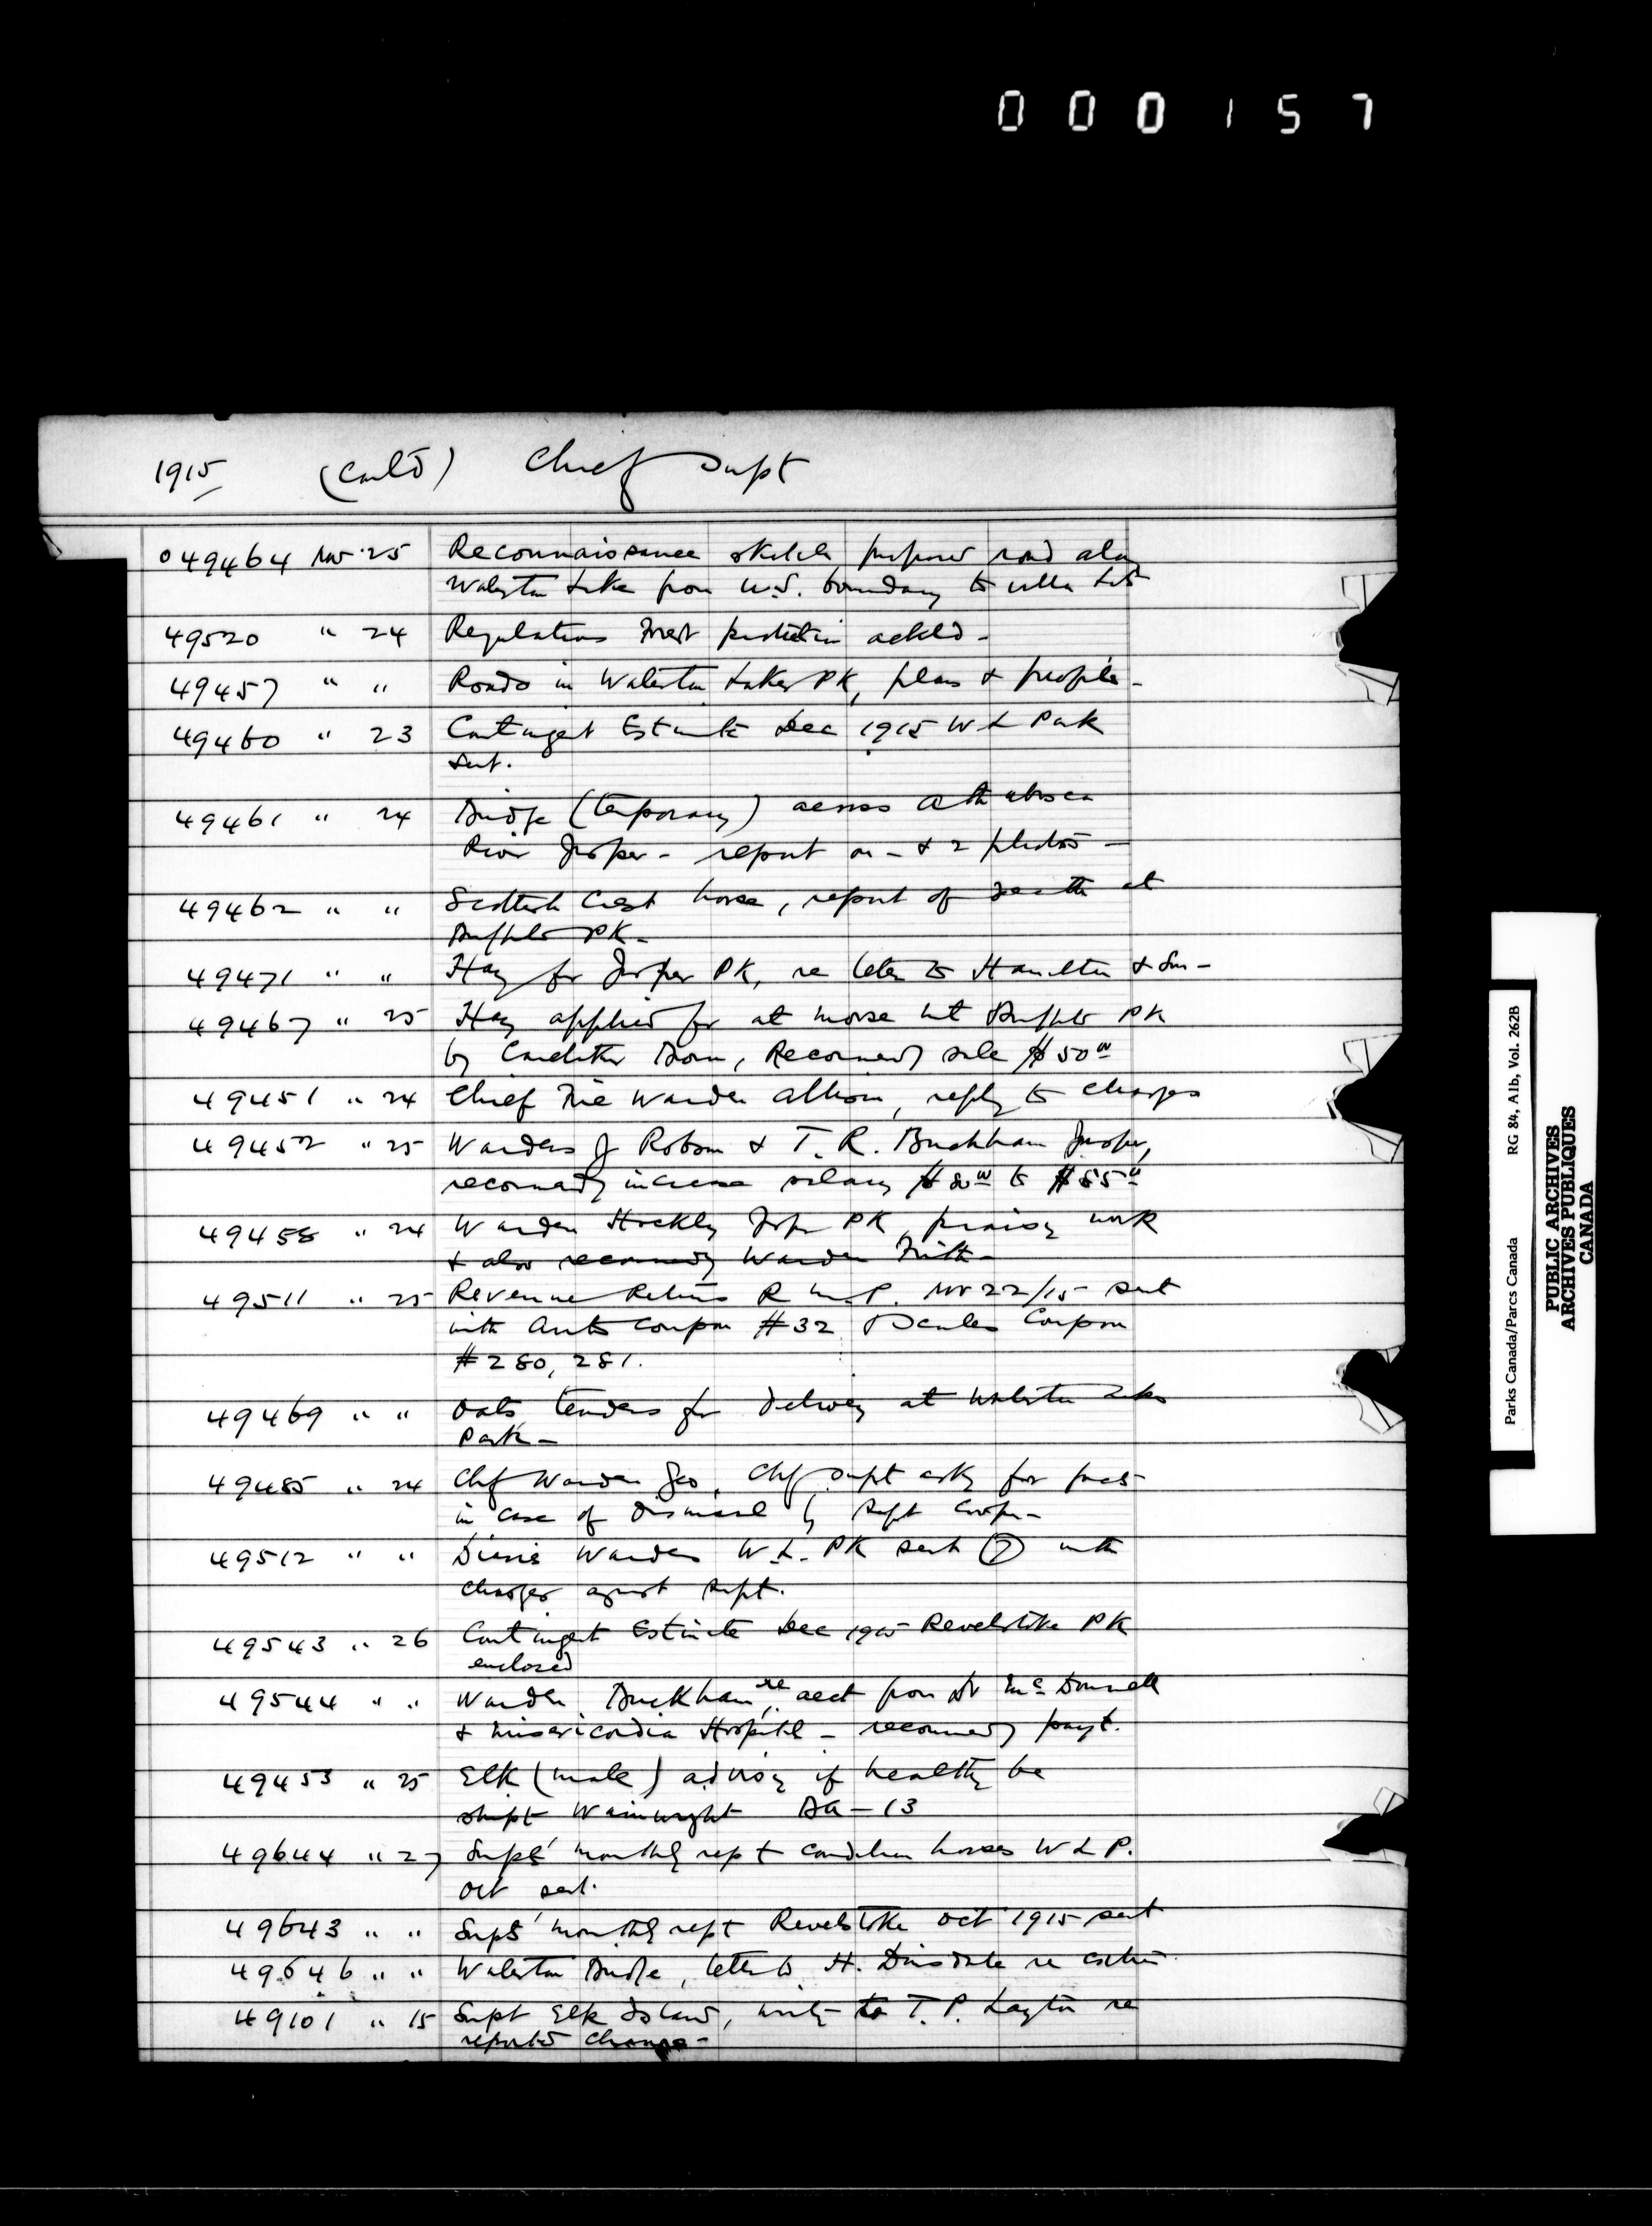 000157
1915 (Cont'd) Chief Supt
049464 Nov 25 Reconnaissance sketch proposed road along
Waterton Lake from U.S. boundary to villa lots
49520 " 24 Regulations Forest protection ackld -
49457 " " Roads in Waterton Lakes PK, plans & profile -
49460 " 23 Contingent Estimate Dec 1915 W L Park
sent.
49461 " 24 Bridge (temporary) across Athabasca
River Jasper - report on - & 2 photos -
49462 " " Scottish Crest horse, report of death at
Buffalo PK -
49471 " " Hay for Jasper PK, re letter to Hamilton & Son -
49467 " 25 Hay applied for at moose hut Buffalo PK
by Caretaker, Recommendg sale $50 00
49451 " 24 Chief Fire Warden Allison, reply to charges
49452 " 25 Wardens J Robson & T. R. Buckham Jasper,
recommendg increase salary $80 00 to $85 00
49458 " 24 Warden Hockley Jasper PK, praising work
& also recommendg Warden Frith -
49511 " 25 Revenue Returns R M P. Nov 22/15 sent
with Auto Coupon #32 Dealer Coupon
#280, 281.
49469 " " Oats, tenders for delivery at Waterton Lakes
Park -
49485 " 24 Chf Warden Geo, Chf Supt askg for facts
in case of Dismissal by Supt Cooper -
49512 " " Diaries Wardens W. L. PK sent (7) with
charges against Supt.
49543 " 26 Contingent Estimate Dec 1915 Revelstoke PK
enclosed
49544 " " Warden Buckham, re acct from Dr McDonnell
& Misericordia Hospital - recommendg payt.
49453 " 25 Elk (male) advisg if healthy be
shipt Wainwright Ba-13
49644 " 27 Supts' monthly rept condition horses W L P.
Oct sent.
49643 " " Supts' monthly rept Revelstoke Oct 1915 sent
49646 " " Waterton Bridge, letter to H. Dinsdale re
49101 " 15 Supt Elk Island, writg to T. P. Layton re
reported change -
Parks Canada/Parcs Canada RG 84, A1b, Vol. 262B
PUBLIC ARCHIVES
ARCHIVES PUBLIQUES
CANADA